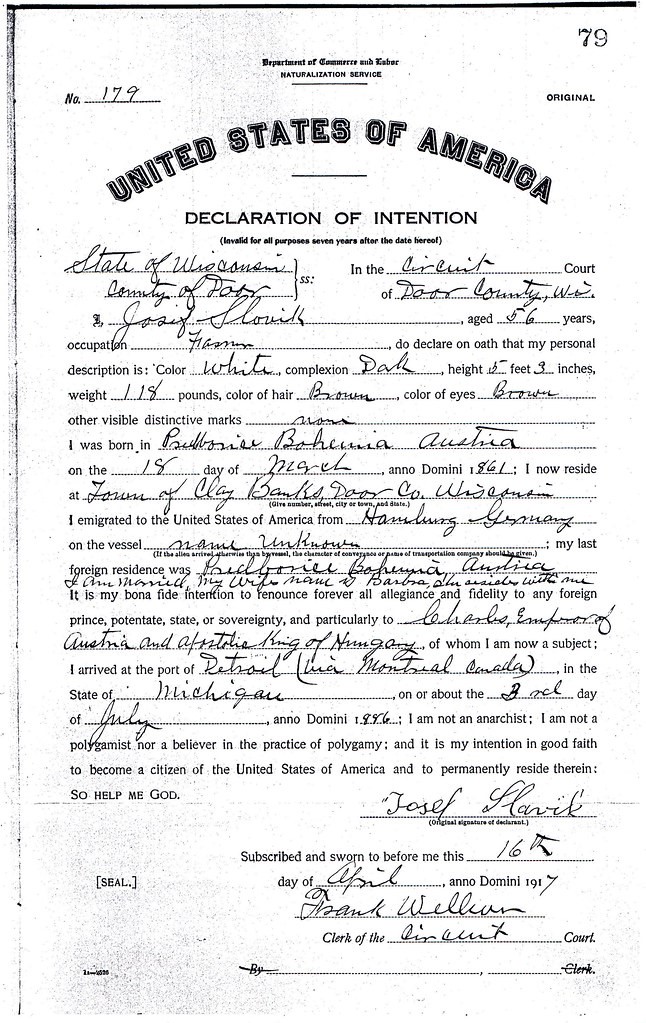 79
Department of Commerce and Labor
NATURALIZATION SERVICE
No. 179
ORIGINAL
UNITED STATES OF AMERICA
DECLARATION OF INTENTION
(Invalid for all purposes seven years after the date hereof)
State of Wisconsin } ss: In the Circuit Court
County of Door of Door County, Wis.
I, Josef Slovik, aged 56 years,
occupation Farmer, do declare on oath that my personal
description is: Color White, complexion Dark, height 5 feet 3 inches,
weight 118 pounds, color of hair Brown, color of eyes Brown
other visible distinctive marks none
I was born in Bohemia Austria
on the 18 day of March, anno Domini 1861; I now reside
at Town of Clay Banks, Door Co. Wisconsin
(Give number, street, city or town, and State.)
I emigrated to the United States of America from Hamburg Germany
on the vessel name unknown; my last
(If the alien arrived otherwise than by vessel, the character of conveyance or name of transportation company should be given.)
foreign residence was Bohemia Austria
I am married, my wifes name is Barbra, she resides with me
It is my bona fide intention to renounce forever all allegiance and fidelity to any foreign
prince, potentate, state, or sovereignty, and particularly to Charles, Emperor of
Austria and apostolic King of Hungary, of whom I am now a subject;
I arrived at the port of Detroit (via Montreal Canada), in the
State of Michigan, on or about the 3rd day
of July, anno Domini 1886; I am not an anarchist; I am not a
polygamist nor a believer in the practice of polygamy; and it is my intention in good faith
to become a citizen of the United States of America and to permanently reside therein:
SO HELP ME GOD.
"Josef Slavik"
(Original signature of declarant.)
Subscribed and sworn to before me this 16th
[SEAL.] day of April, anno Domini 1917
Frank
Clerk of the Circuit Court.
By , Clerk.